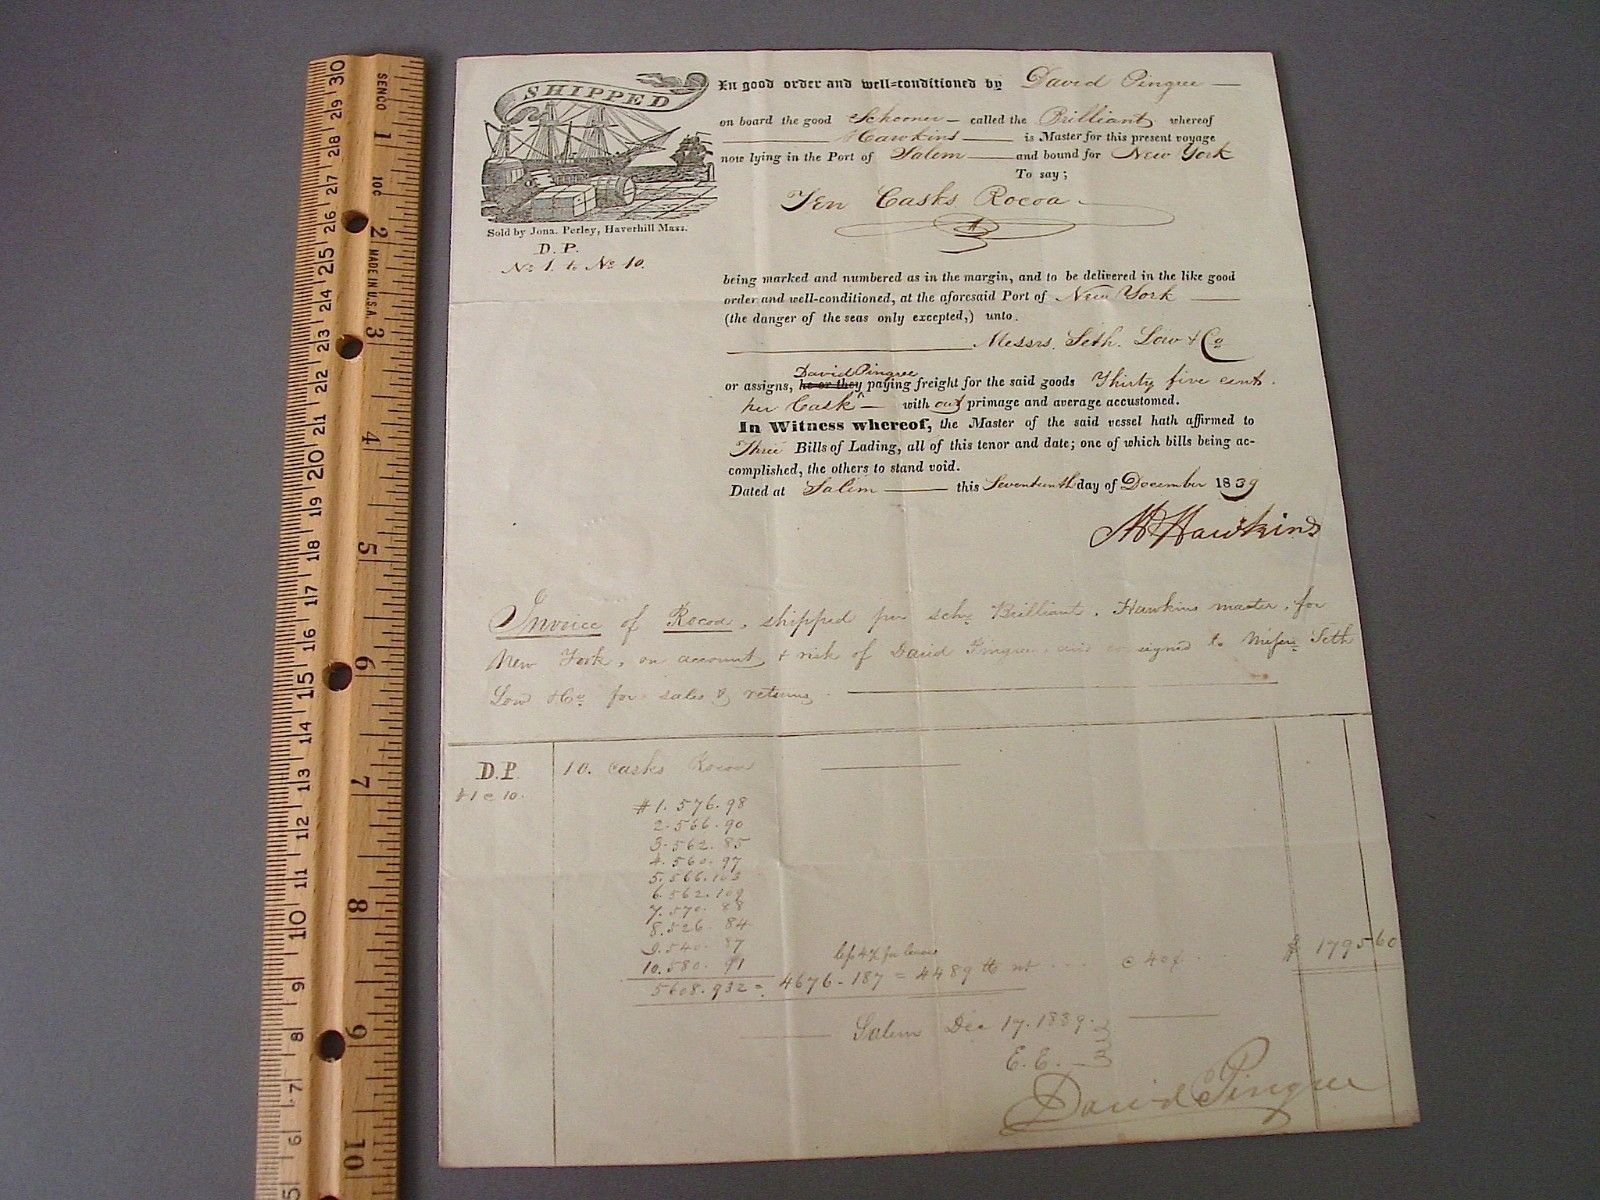 SHIPPED
In good order and well-conditioned by David Pingree
on board the good Schooner called the Brilliant whereof
Hawkins is Master for this present voyage
now lying in the Port of Salem and bound for New York
To say;
Ten Casks Rocoa
Sold by Jona. Perley, Haverhill Mass.
D. P.
No 1. to No 10.
being marked and numbered as in the margin, and to be delivered in the like good
order and well-conditioned, at the aforesaid Port of New York
(the danger of the seas only excepted,) unto.
Messrs. Seth. Low & Co
David Pingree
or assigns, he or they paying freight for the said goods Thirty five cents.
per Cask with out primage and average accustomed.
In Witness whereof, the Master of the said vessel hath affirmed to
Three Bills of Lading, all of this tenor and date; one of which bills being ac-
complished, the others to stand void.
Dated at Salem this Seventeenth day of December 1839
Hawkins
Invoice of Rocoa, shipped per schr Brilliant, Hawkins master, for
New York, on account & risk of David Pingree, and consigned to Messrs Seth
Low & Co. for sales & returns.
D.P. 10. Casks Rocoa
#1 @ 10.
#1. 576. 98
2. 566. 90
3. 562. 85
4. 560. 97
5. 566. 103
6. 562. 109
7. 570. 88
8. 526. 84
9. 540. 87
10. 580. 91
less 4% for
5608. 932 = 4676 - 187 = 4489 lb nt @ 40¢ $ 1795 60
Salem Dec 17. 1839.
E. E.
David Pingree
SENCO
10C
MADE IN U.S.A.
1 2 3 4 5 6 7 8 9 10
30 29 28 27 26 25 24 23 22 21 20 19 18 17 16 15 14 13 12 11 10 9 8 7 6 5